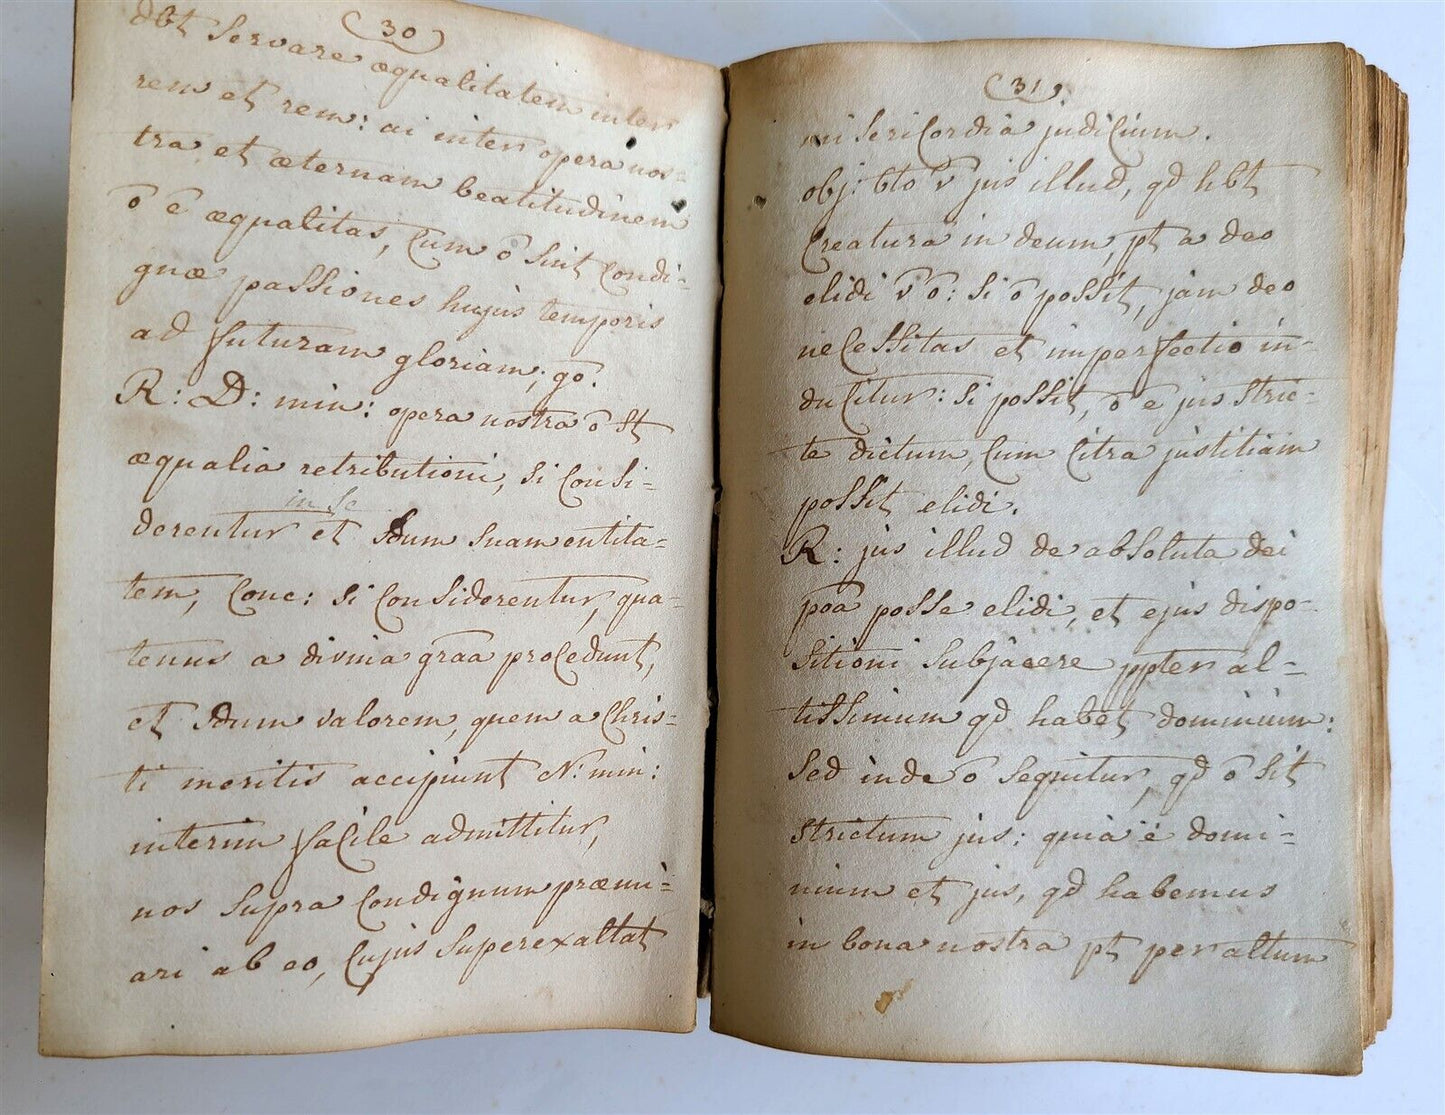 (30)
dbt servare æqualitatem inter
rem et rem: at inter opera nos=
tra et æternam beatitudinem
ō ē æqualitas, cum ō sint condi=
gnæ passiones hujus temporis
ad futuram gloriam; gō.
R: D: min: opera nostra ō st
æqualia retributioni, si consi=
in se
derentur et sdum suam entita=
tem, conc: si considerentur, qua=
tenus a divina graā procedunt,
et sdum valorem, quem a Chris=
ti meritis accipiunt N: min:
interim facile admittitur,
nos supra condignum præmi=
ari ab eo, cujus superexaltat
(31)
misericordia judicium.
obj: bto v̄ jus illud, qd hbt
creatura in deum, pt a deo
elidi v̄ ō: si ō possit, jam deo
necessitas et imperfectio in=
ducitur: si possit, ō ē jus stric=
te dictum, cum citra justitiam
possit elidi.
R: jus illud de absoluta dei
poā posse elidi, et ejus dispo=
sitioni subjacere ppter al=
tissimum qd habet dominium:
sed inde ō sequitur, qd ō sit
strictum jus: quia ē domi=
nium et jus, qd habemus
in bona nostra pt per altum